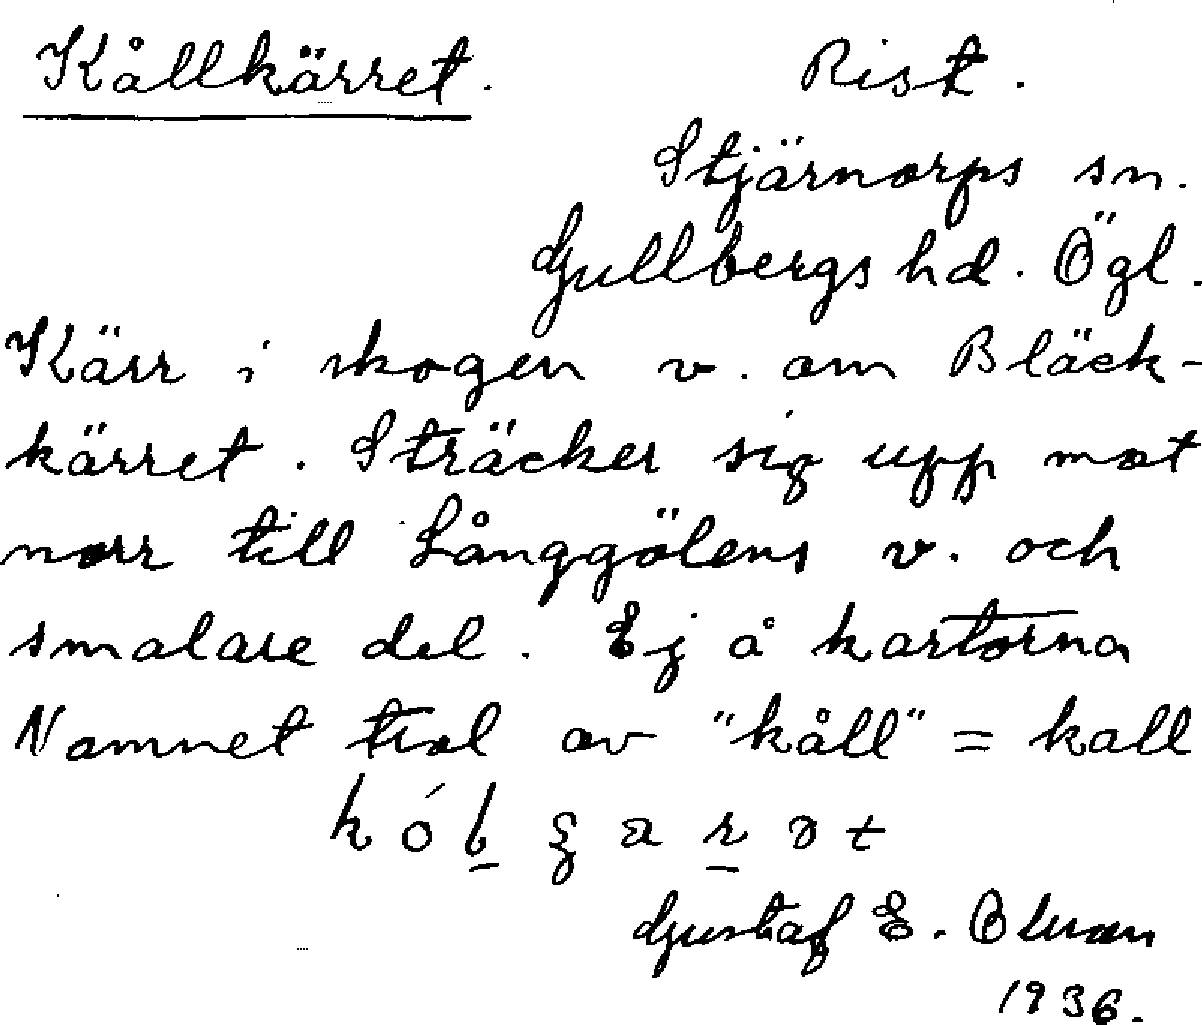 Kållkärret. Rist.
Stjärnorps sn.
Gullbergs hd. Ögl.
Kärr i skogen v. om Bläck-
kärret. Sträcker sig upp mot
norr till Långgölens v. och
smalare del. Ej å kartorna
Namnet trol av "kåll" = kall
Gustaf E.
1936.